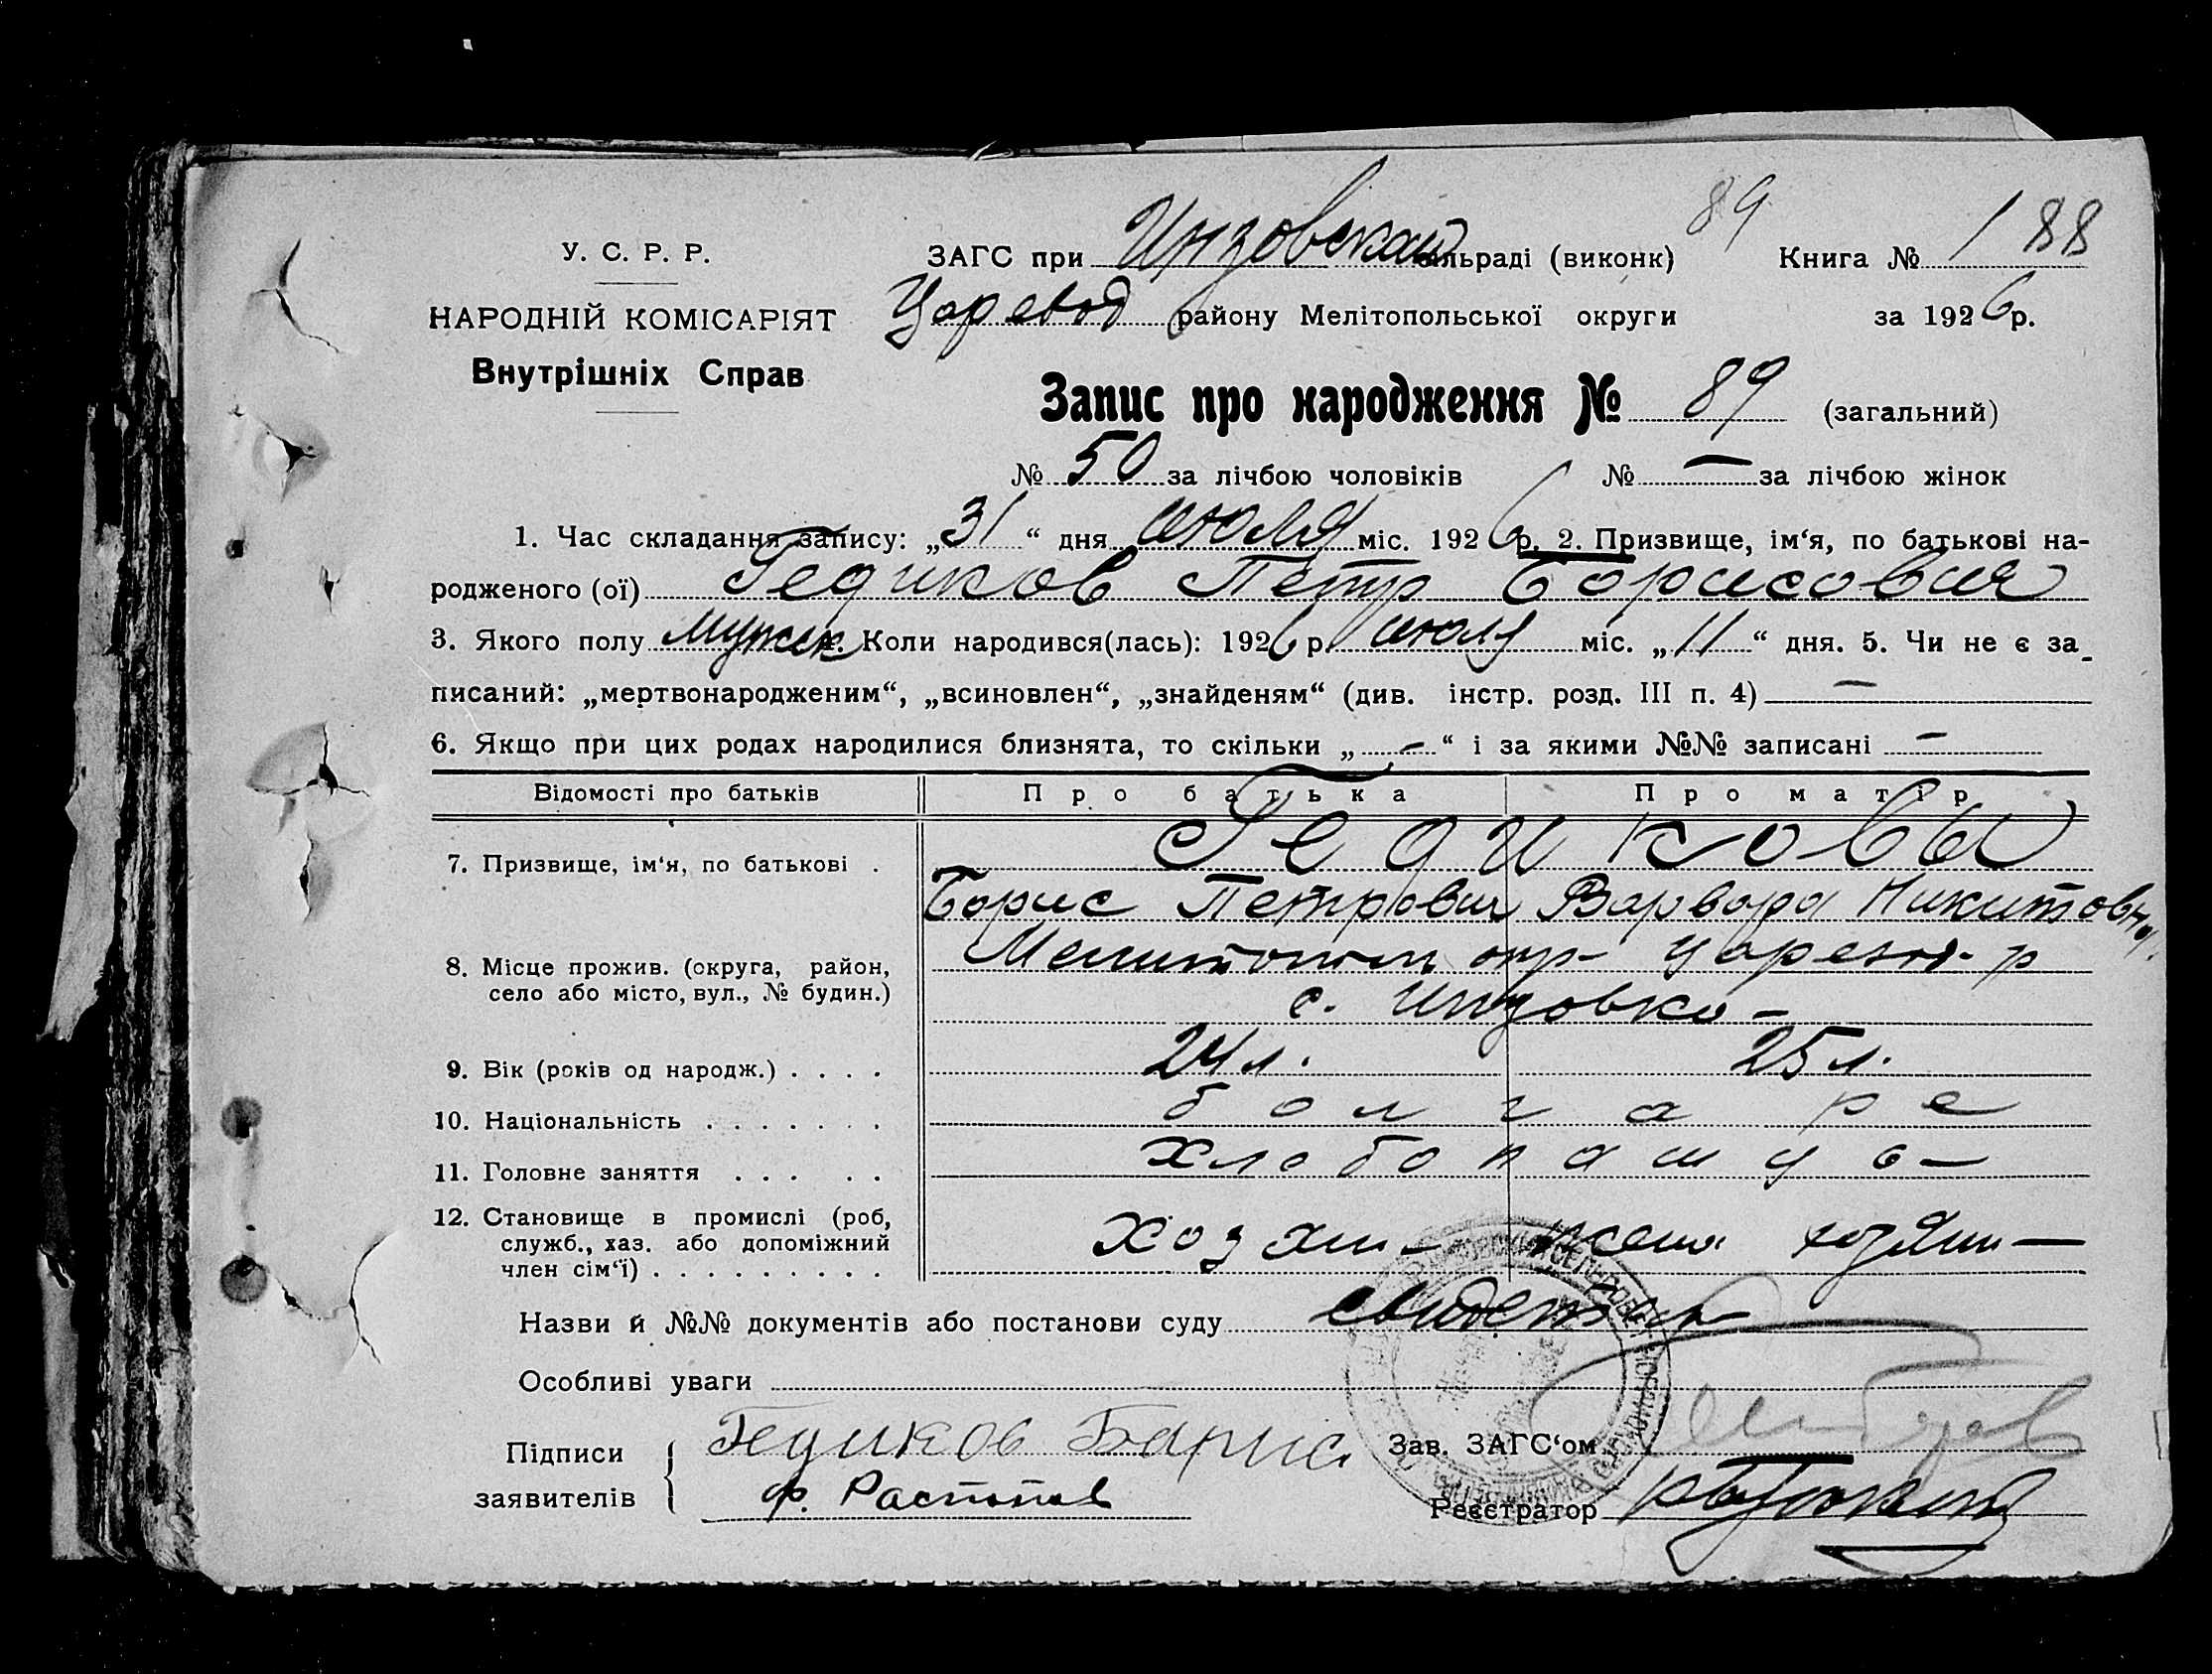 89
У. С. Р. Р.
ЗАГС при Инзовской сільраді (виконк) Книга № 1 88
НАРОДНІЙ КОМІСАРІЯТ
Царевод району Мелітопольської округи за 1926 р.
Внутрішніх Справ
Запис про народження № 89 (загальний)
№ 50 за лічбою чоловіків № — за лічбою жінок
1. Час складання запису: „31“ дня июля міс. 1926 р. 2. Призвище, ім‘я, по батькові на-
родженого (ої) Гедиков Петр Борисович
3. Якого полу мужск 4. Коли народився(лась): 1926 р. июля міс. „11“ дня. 5. Чи не є за-
писаний: „мертвонародженим“, „всиновлен“, „знайденям“ (див. інстр. розд. III п. 4) —
6. Якщо при цих родах народилися близнята, то скільки „ — “ і за якими №№ записані —
Відомості про батьків Про батька Про матір
7. Призвище, ім‘я, по батькові . Гедиковы
Борис Петрович Варвара Никитовна
8. Місце прожив. (округа, район, Мелитополь окр- Царевод. р
село або місто, вул., № будин.) с. Инзовка -
9. Вік (років од народж.) . . . . 24 л. 25 л.
10. Національність . . . . . . . болгаре
11. Головне заняття . . . . . хлебопашцы —
12. Становище в промислі (роб,
служб., хаз. або допоміжний хозяин - жена хозяин —
член сім‘ї) . . . . . . . . .
Назви й №№ документів або постанови суду
Особливі уваги
Підписи Гедиков Барис Зав. ЗАГС‘ом
заявителів Ф. Растопов Реєстратор